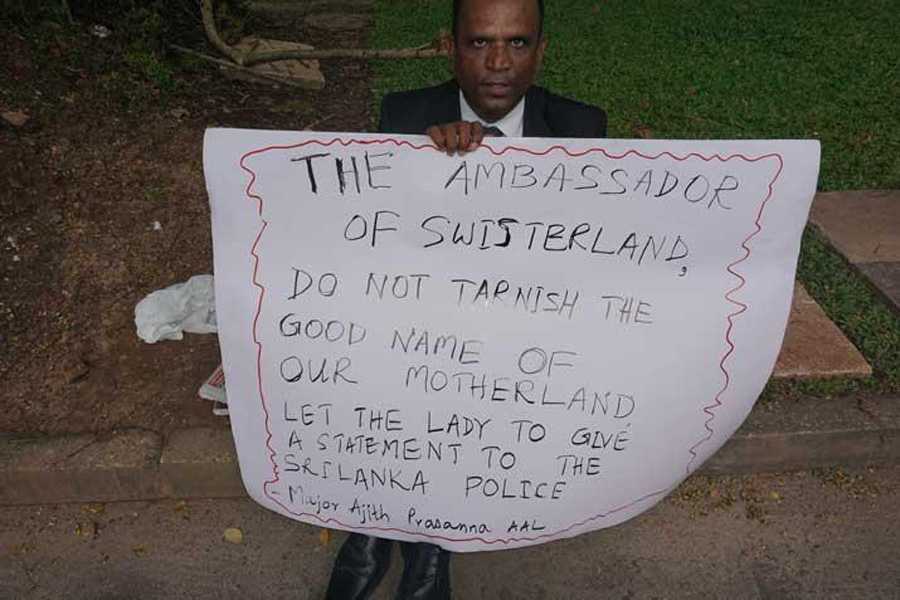 THE AMBASSADOR
OF SWISTERLAND,
DO NOT TARNISH THE
GOOD NAME OF
OUR MOTHERLAND
LET THE LADY TO GIVE
A STATEMENT TO THE
SRILANKA POLICE
- Major Ajith Prasanna AAL